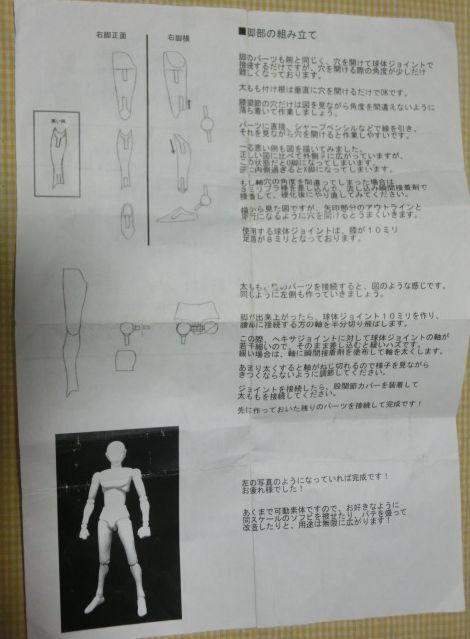 右脚正面
右脚横
悪い例
■脚部の組み立て
脚のパーツも腕と同じく、穴を開けて球体ジョイントで
接続するだけですが、穴を開ける際の角度が少しだけ
難しくなっております。
太もも付け根は垂直に穴を開けるだけでOKです。
膝関節の穴だけは図を見ながら角度を間違えないように
落ち着いて作業しましょう。
パーツに直接、シャープペンシルなどで線を引き、
それを見ながら穴を開けると作業しやすいです。
一応悪い例も図を描いてみました。
正しい図に比べて外側に広がっていますが、
この状態だとO脚になってしまいます。
逆に内側過ぎるとX脚になってしまいます。
もし軸穴の角度を間違ってしまった場合は
3ミリプラ棒を差し込んで、流し込み瞬間接着剤で
接着して、硬化後にやり直してみてください。
横から見た図ですが、矢印部分のアウトラインと
平行になるように穴を開けるとうまくいきます。
使用する球体ジョイントは、膝が10ミリ
足首が8ミリとなっております。
太もも、膝のパーツを接続すると、図のような感じです。
同じように左側も作っていきましょう。
脚が出来上がったら、球体ジョイント10ミリを作り、
腰部に接続する方の軸を半分切り飛ばします。
この際、ヘキサジョイントに対して球体ジョイントの軸が
若干細いので、そのまま差し込むと緩いハズです。
緩い場合は、軸に瞬間接着剤を塗布して軸を太くします。
あまり太くすると軸がねじ切れるので様子を見ながら
きつくならないように調節してください。
ジョイントを接続したら、股関節カバーを装着して
太ももを接続してください。
先に作っておいた残りのパーツを接続して完成です！
左の写真のようになっていれば完成です！
お疲れ様でした！
あくまで可動素体ですので、お好きなように
同スケールのソフビを被せたり、パテを盛って
改造したりと、用途は無限に広がります！